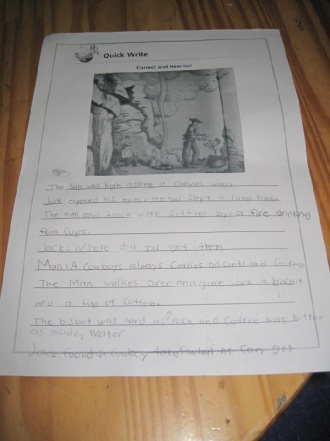 Quick Write
Correct and
The sun was high
Jack opened his eyes. He had slept a long time.
The man and were sitting by a fire drinking
from cups.
Jack: Where did you get them
Man: A cowboys always Carries biscuits and Coffee
The Man walkes over and gave Jack a biscuit
and a cup of Coffee.
The biscuit was hard as rock and Coffee was bitter
as muddy Water
Jack found a Cowboy